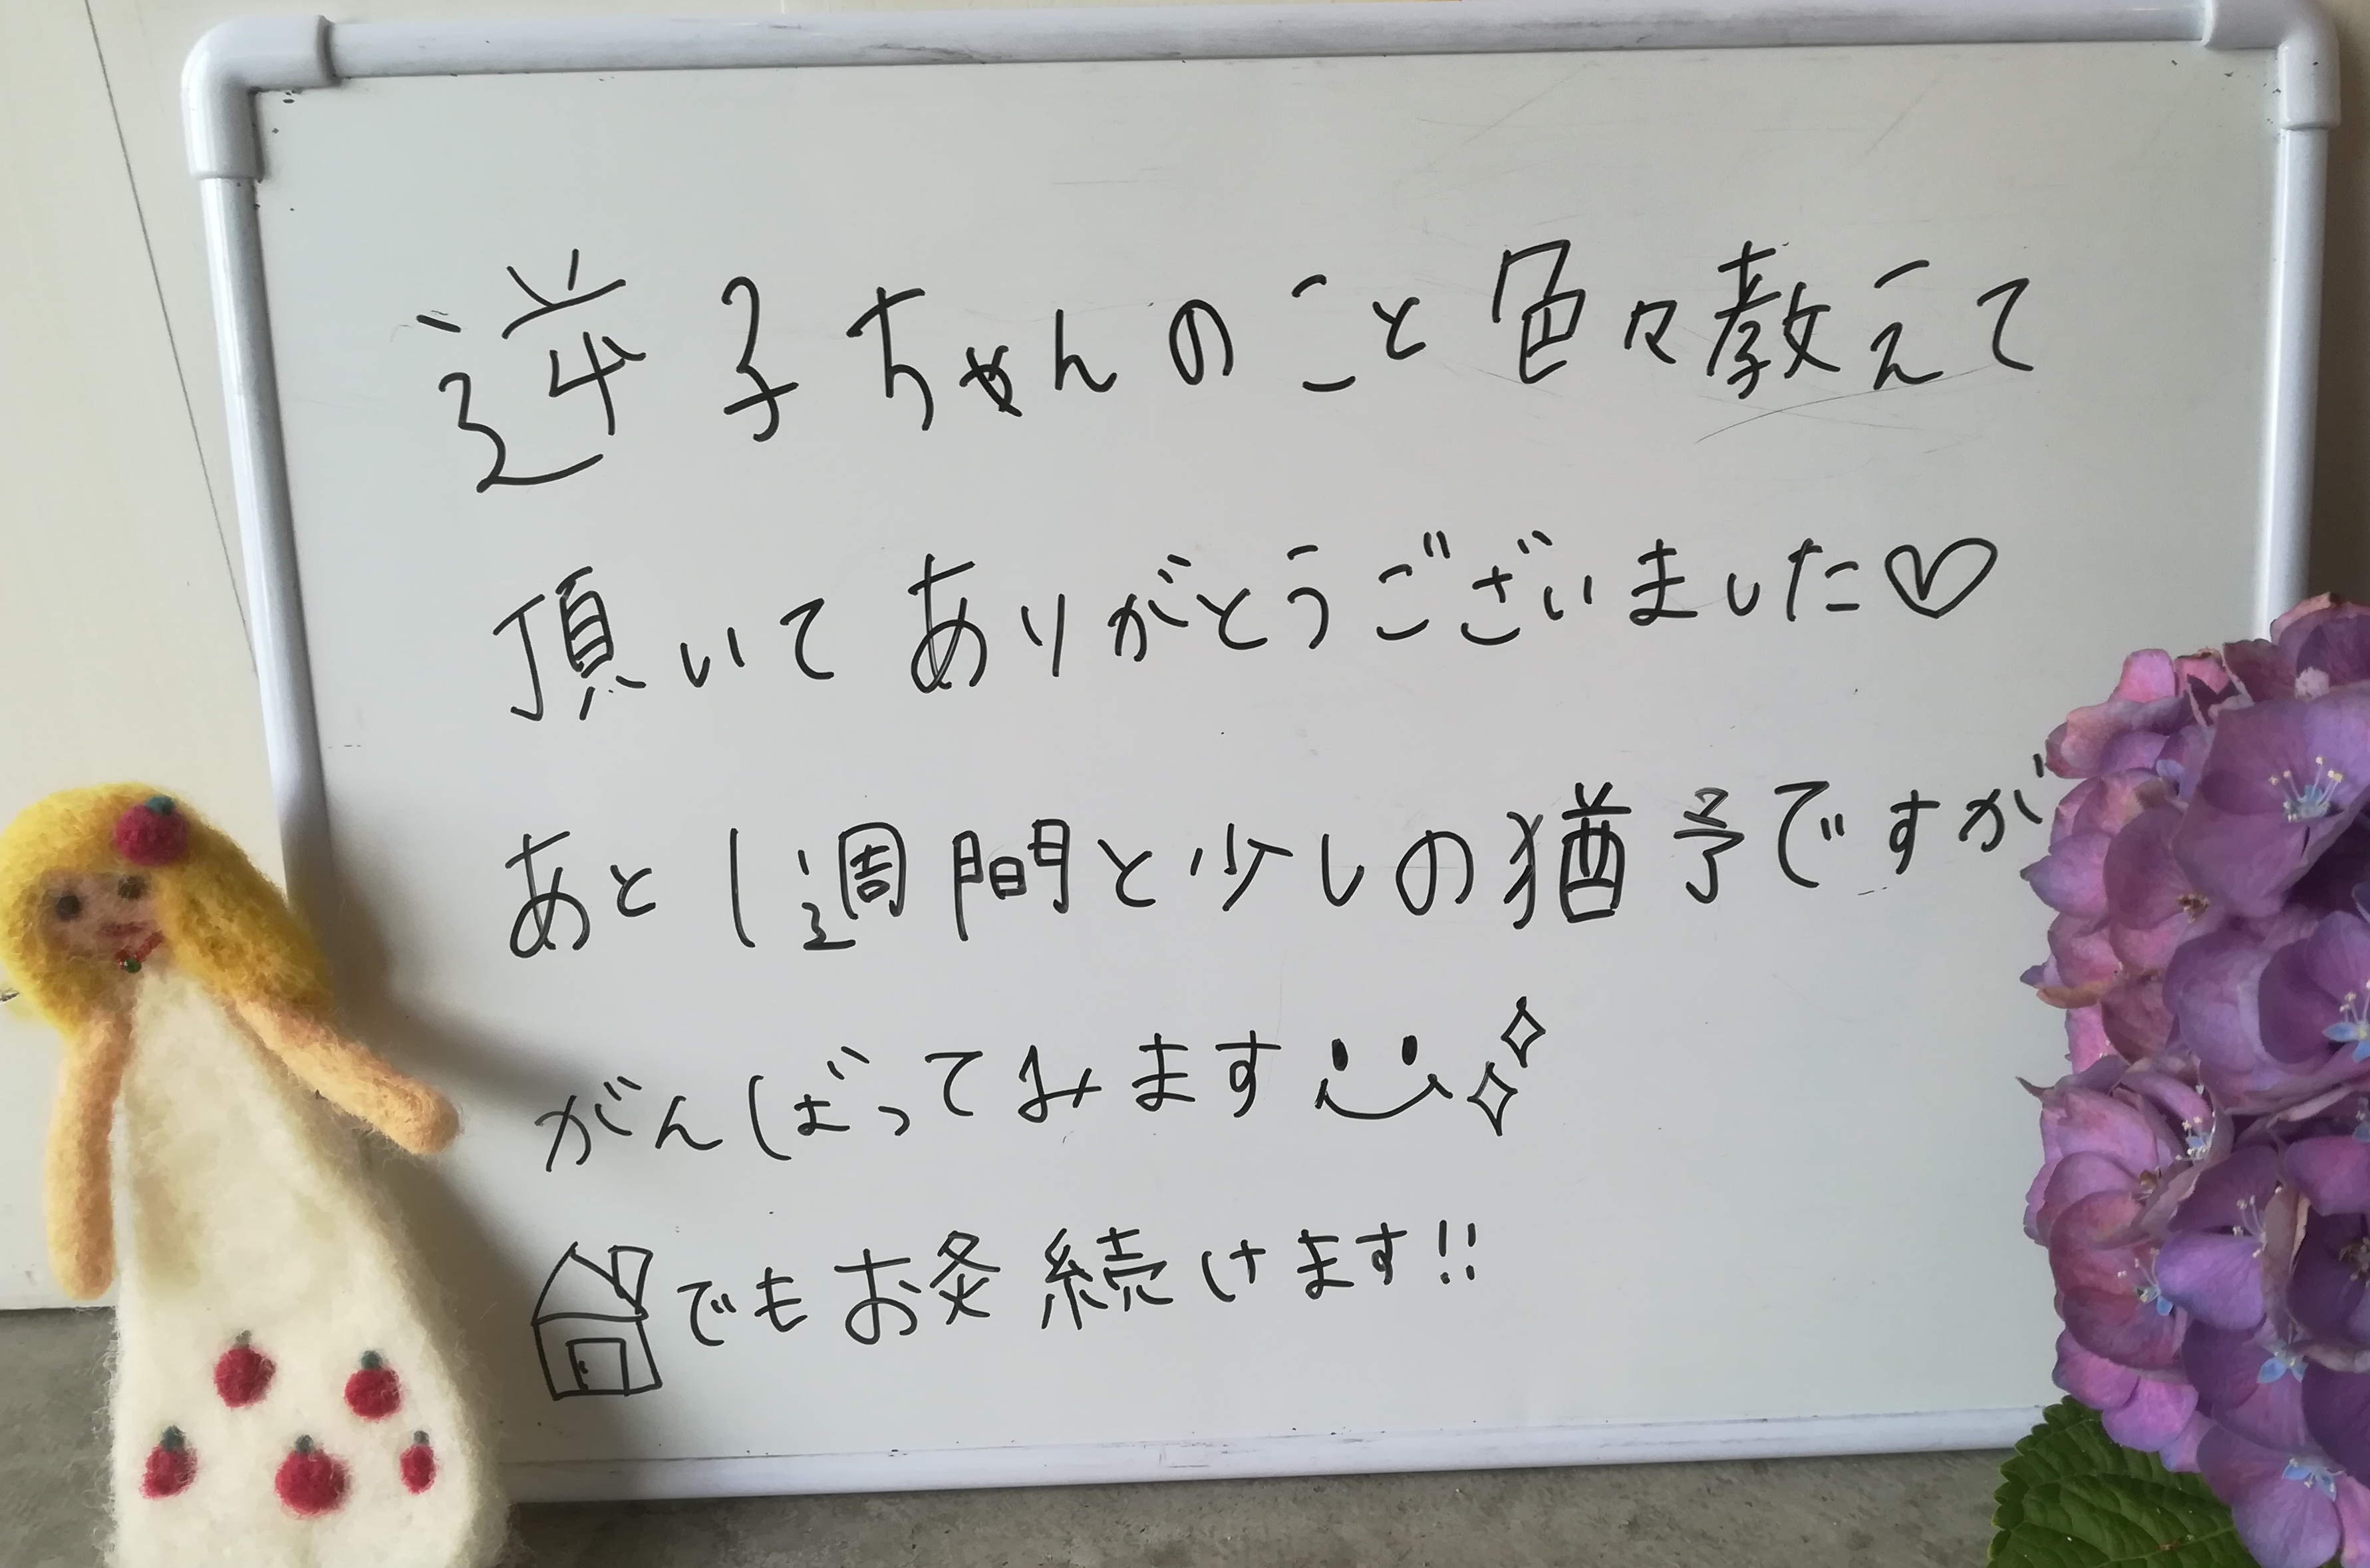 逆子ちゃんのこと色々教えて
頂いてありがとうございました♡
あと1週間と少しの猶予ですが
がんばってみます
でもお灸続けます!!